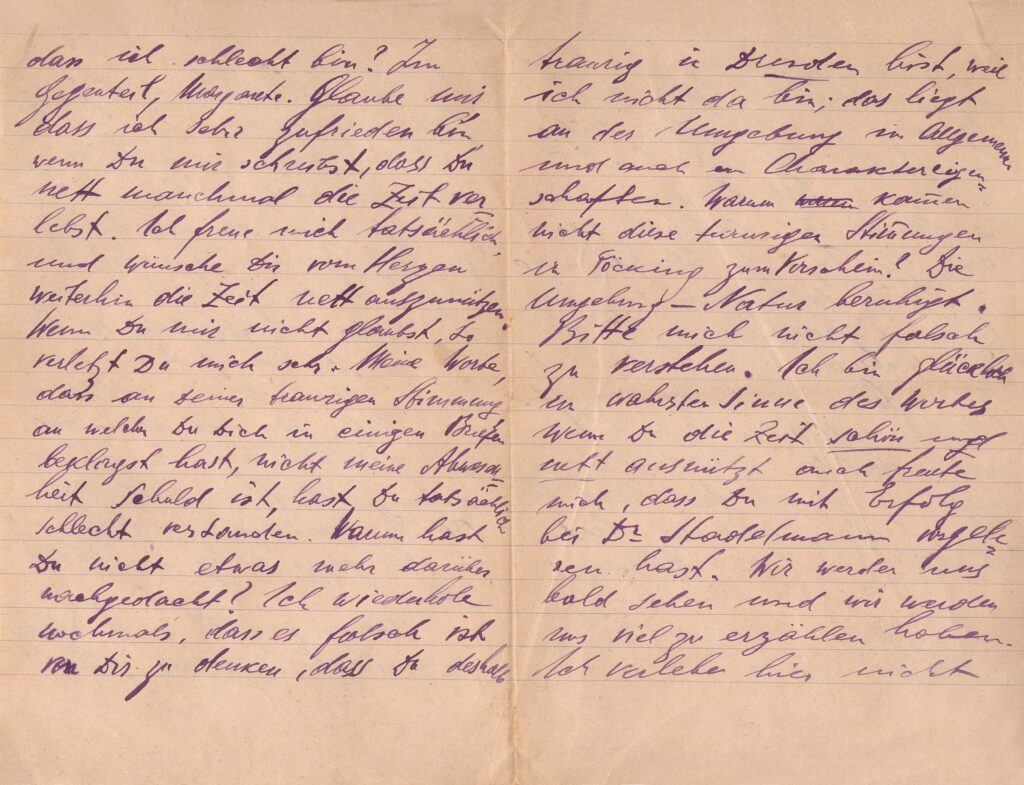 dass ich schlecht bin? Im
Gegenteil, Margarete. Glaube mir
dass ich sehr zufrieden bin
wenn Du mir schreibst, dass Du
nett manchmal die Zeit ver
lebst. Ich freue mich tatsächlich,
und wünsche Dir vom Herzen
weiterhin die Zeit nett auszunützen.
Wenn Du mir nicht glaubst, so
verletzt Du mich sehr. Meine Worte,
dass an deiner traurigen Stimmung
an welchen Du Dich in einigen Briefen
beklagst hast, nicht meine Abwesen=
heit Schuld ist, hast Du tatsächlich
schlecht verstanden. Warum hast
Du nicht etwas mehr darüber
nachgedacht? Ich wiederhole
nochmals, dass es falsch ist
von Dir zu denken, dass Du deshalb
traurig in Dresden bist, weil
ich nicht da bin; das liegt
an der Umgebung im Allgemeinen
und auch an Charaktereigen=
schaften. Warum kamen
nicht diese traurigen Stimmungen
in Töcking zum Vorschein? Die
Umgebung – Natur beruhigt.
Bitte mich nicht falsch
zu verstehen. Ich bin glücklich
im wahrsten Sinne des Wortes
wenn Du die Zeit schön und
nett ausnützt auch freute
mich, dass Du mit Erfolg
bei Dr Stadelmann
hast. Wir werden uns
bald sehen und wir werden
uns viel zu erzählen haben.
Ich verlebe hier nicht